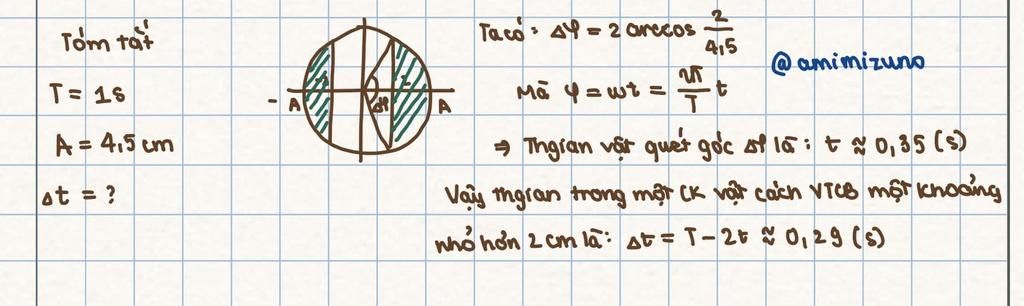 Tóm tắt
T = 1s
A = 4,5 cm
Δt = ?
- A
Δφ
A
Ta có: Δφ = 2 arccos 2/4,5
@amimizuno
Mà φ = ωt = 2π/T t
⇒ Thgian vật quét góc Δφ là: t ≈ 0,35 (s)
Vậy thgian trong một CK vật cách VTCB một khoảng
nhỏ hơn 2 cm là: Δt = T - 2t ≈ 0,29 (s)